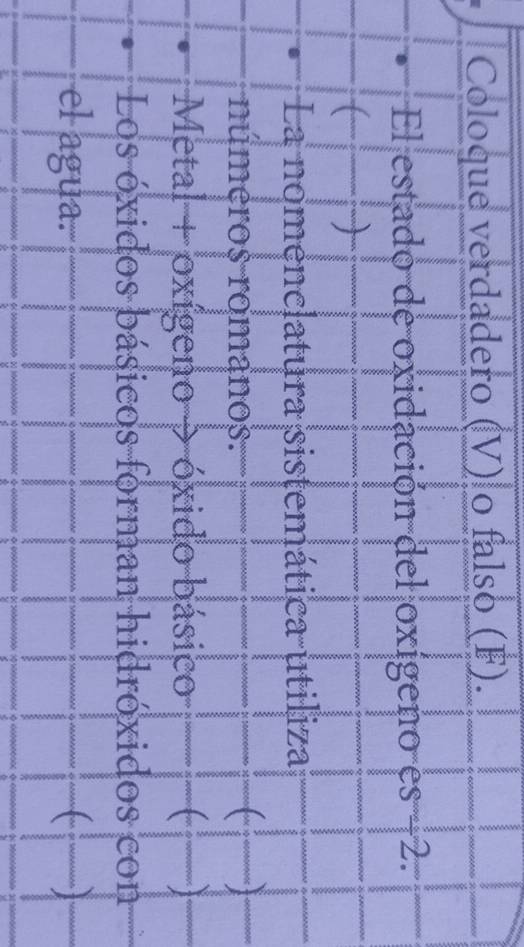 Coloque verdadero (V) o falso (F).
• El estado de oxidación del oxígeno es −2.
( )
• La nomenclatura sistemática utiliza
números romanos. ( )
• Metal + oxígeno → óxido básico ( )
• Los óxidos básicos forman hidróxidos con
el agua. ( )